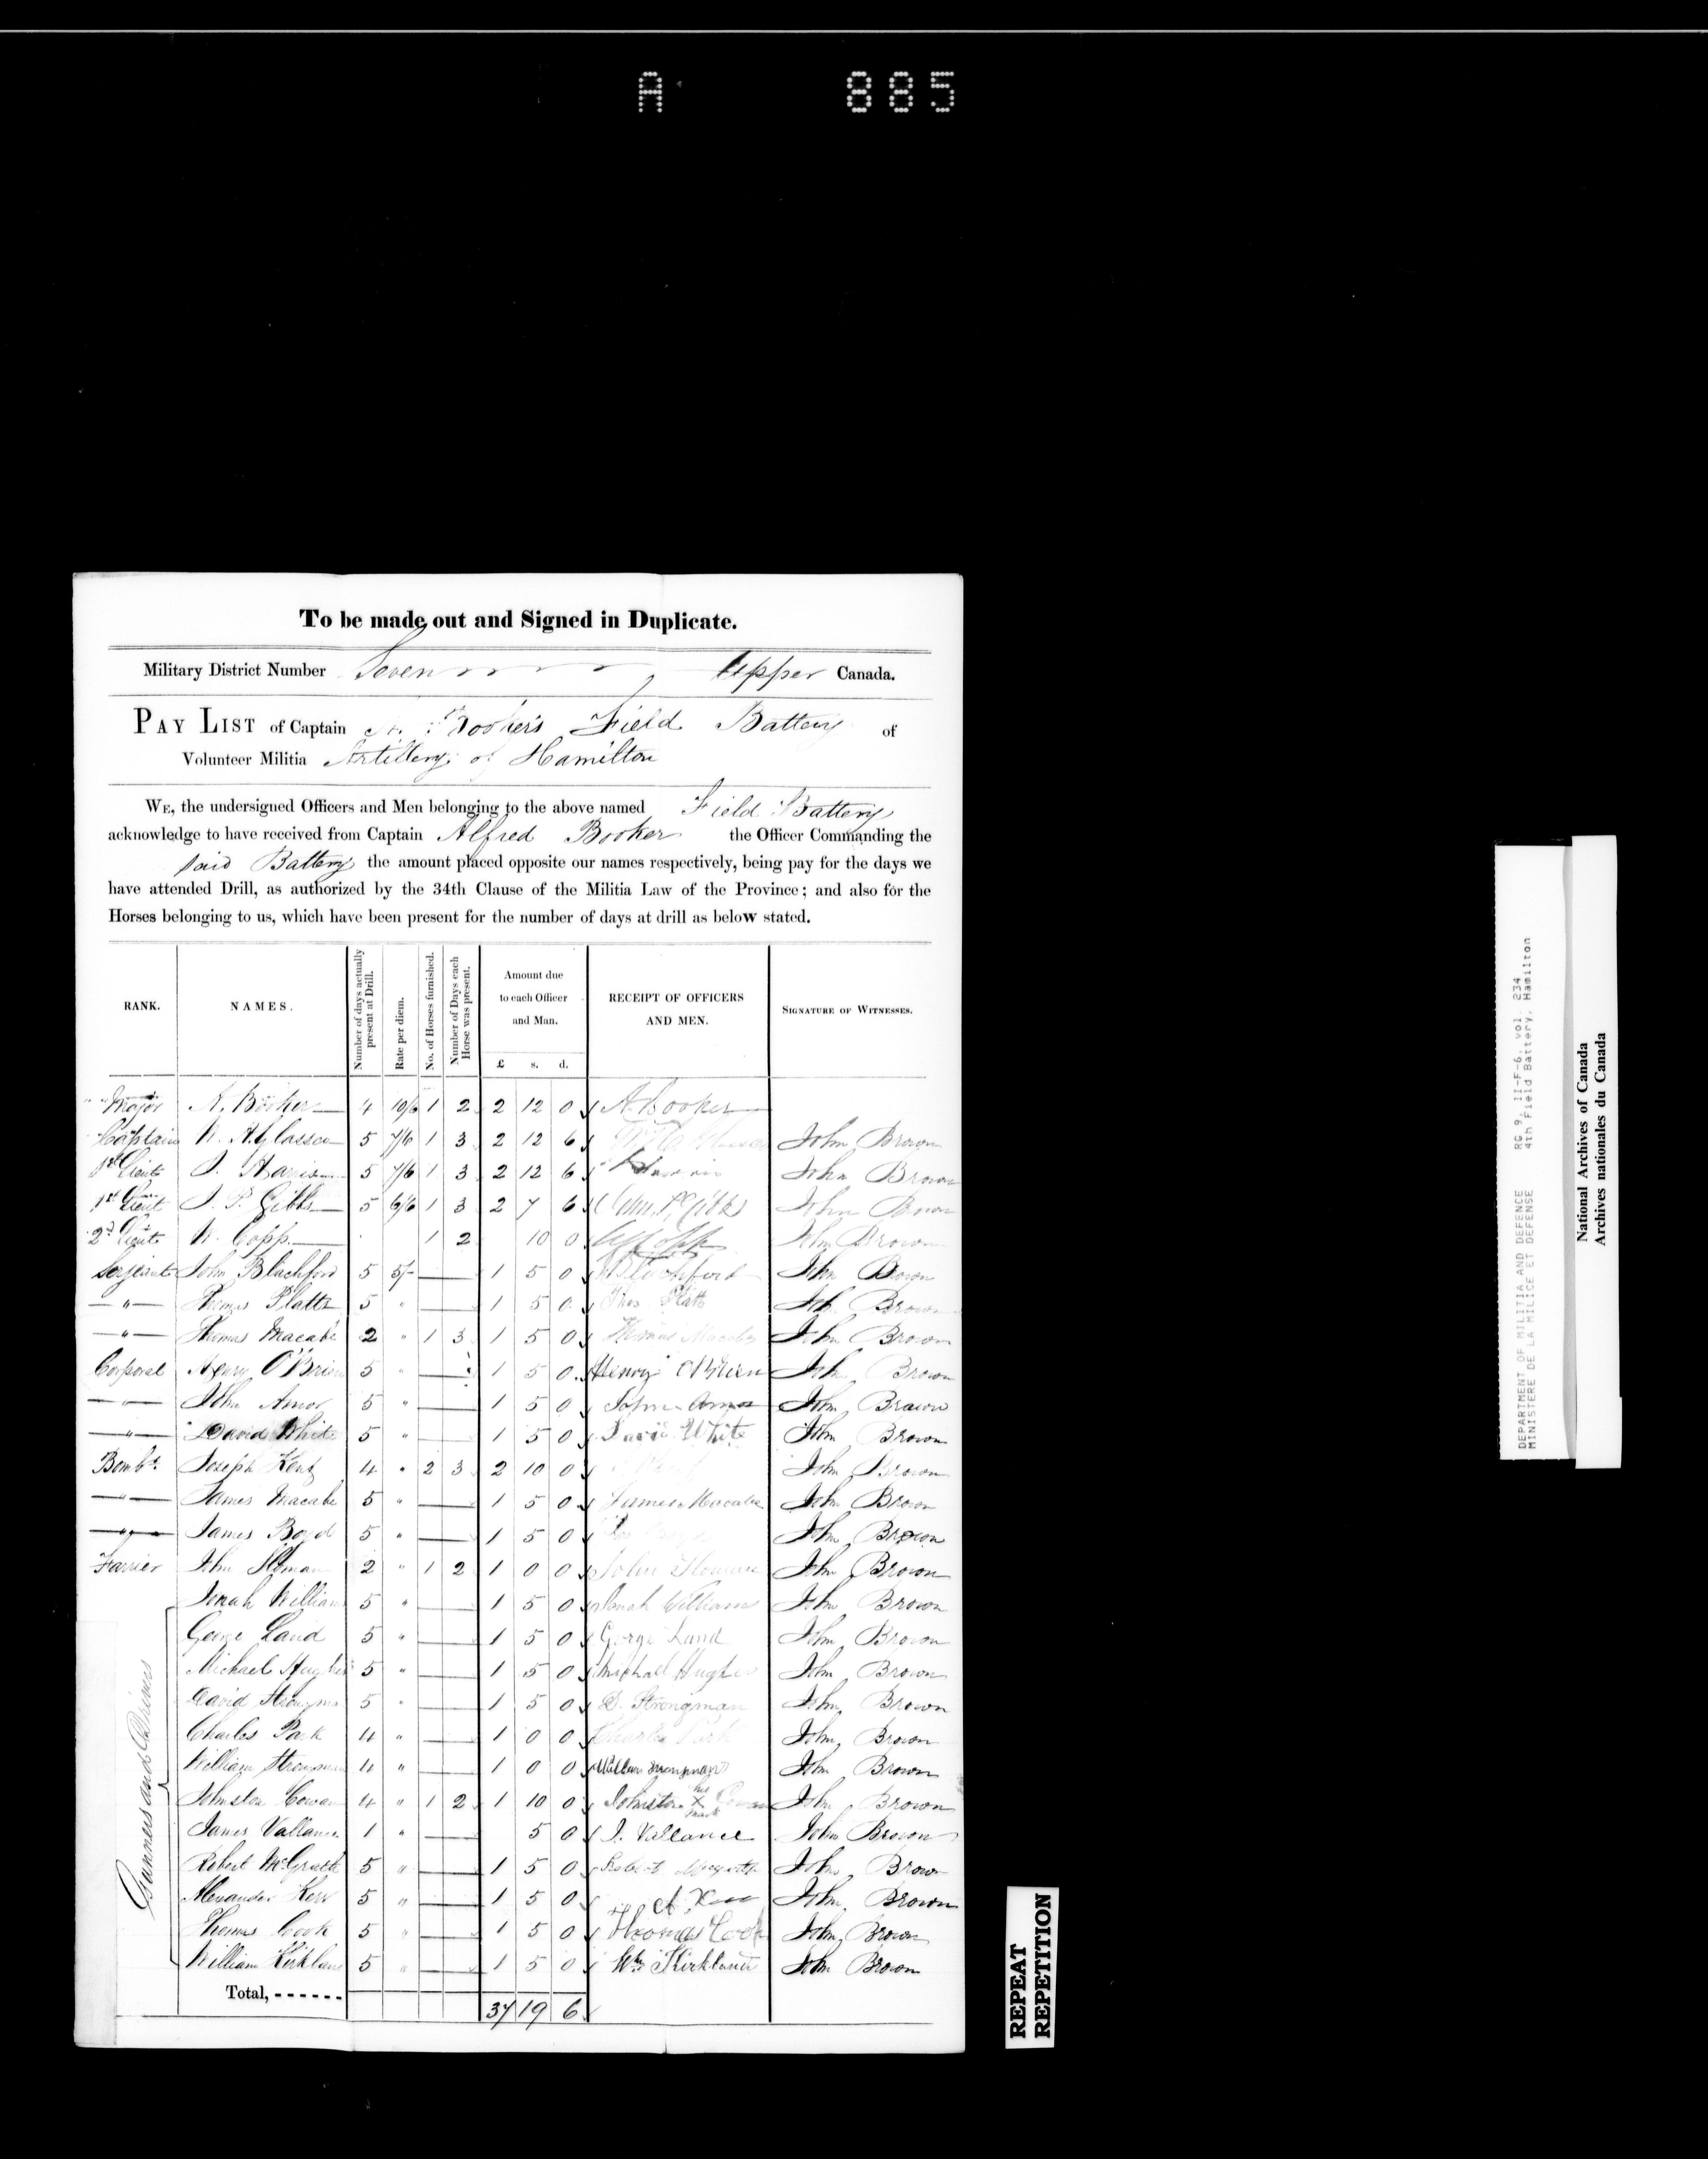 A 885
To be made out and Signed in Duplicate.
Military District Number Seven Upper Canada.
PAY LIST of Captain A. Booker's Field Battery of
Volunteer Militia Artillery of Hamilton
WE, the undersigned Officers and Men belonging to the above named Field Battery
acknowledge to have received from Captain Alfred Booker the Officer Commanding the
said Battery the amount placed opposite our names respectively, being pay for the days we
have attended Drill, as authorized by the 34th Clause of the Militia Law of the Province; and also for the
Horses belonging to us, which have been present for the number of days at drill as below stated.
RANK. NAMES. Number of days actually present at Drill. Rate per diem. No. of Horses furnished. Number of Days each Horse was present. Amount due to each Officer and Man. £ s. d. RECEIPT OF OFFICERS AND MEN. SIGNATURE OF WITNESSES.
Major A. Booker 4 10/6 1 2 2 12 0 A. Booker
Captain W. A. Glassco 5 7/6 1 3 2 12 6 John Brown
1st Lieut J. Harris 5 7/6 1 3 2 12 6 John Brown
1st Lieut J. P. Gibbs 5 6/6 1 3 2 7 6 P. Gibbs John Brown
2d Lieut W. Copp 1 2 10 0 W Copp John Brown
Serjeant John Blachford 5 5/- 1 5 0 Blachford John Brown
" Thomas Platts 5 " 1 5 0 Thos Platts John Brown
" Thomas Macabe 2 " 1 3 1 5 0 Thomas Macabe John Brown
Corporal Henry O'Brien 5 " 1 5 0 Henry OBrien John Brown
" John Amor 5 " 1 5 0 John Amor John Brown
" David White 5 " 1 5 0 David White John Brown
Bombr. Joseph Kent 4 " 2 3 2 10 0 John Brown
" James Macabe 5 " 1 5 0 James Macabe John Brown
" James Boyd 5 " 1 5 0 John Brown
Farrier John 2 " 1 2 1 0 0 John John Brown
Gunners and Drivers
Jonah William 5 " 1 5 0 Jonah Williams John Brown
George Land 5 " 1 5 0 Gorge Land John Brown
Michael Hughes 5 " 1 5 0 Michael Hughes John Brown
David Strongman 5 " 1 5 0 D. Strongman John Brown
Charles Park 4 " 1 0 0 Charles Park John Brown
William Strongman 4 " 1 0 0 William Strongman John Brown
Johnston Cowan 4 " 1 2 1 10 0 Johnston his X mark Cowan John Brown
James Vallance 1 " 5 0 J. Vallance John Brown
Robert McGrath 5 " 1 5 0 Robert John Brown
Alexander Kerr 5 " 1 5 0 A. Kerr John Brown
Thomas Cook 5 " 1 5 0 Thomas Cook John Brown
William Kirkland 5 " 1 5 0 Wm Kirkland John Brown
Total, 37 19 6
REPEAT
REPETITION
DEPARTMENT OF MILITIA AND DEFENCE RG 9, II-F-6, vol. 234
MINISTERE DE LA MILICE ET DEFENSE 4th Field Battery, Hamilton
National Archives of Canada
Archives nationales du Canada